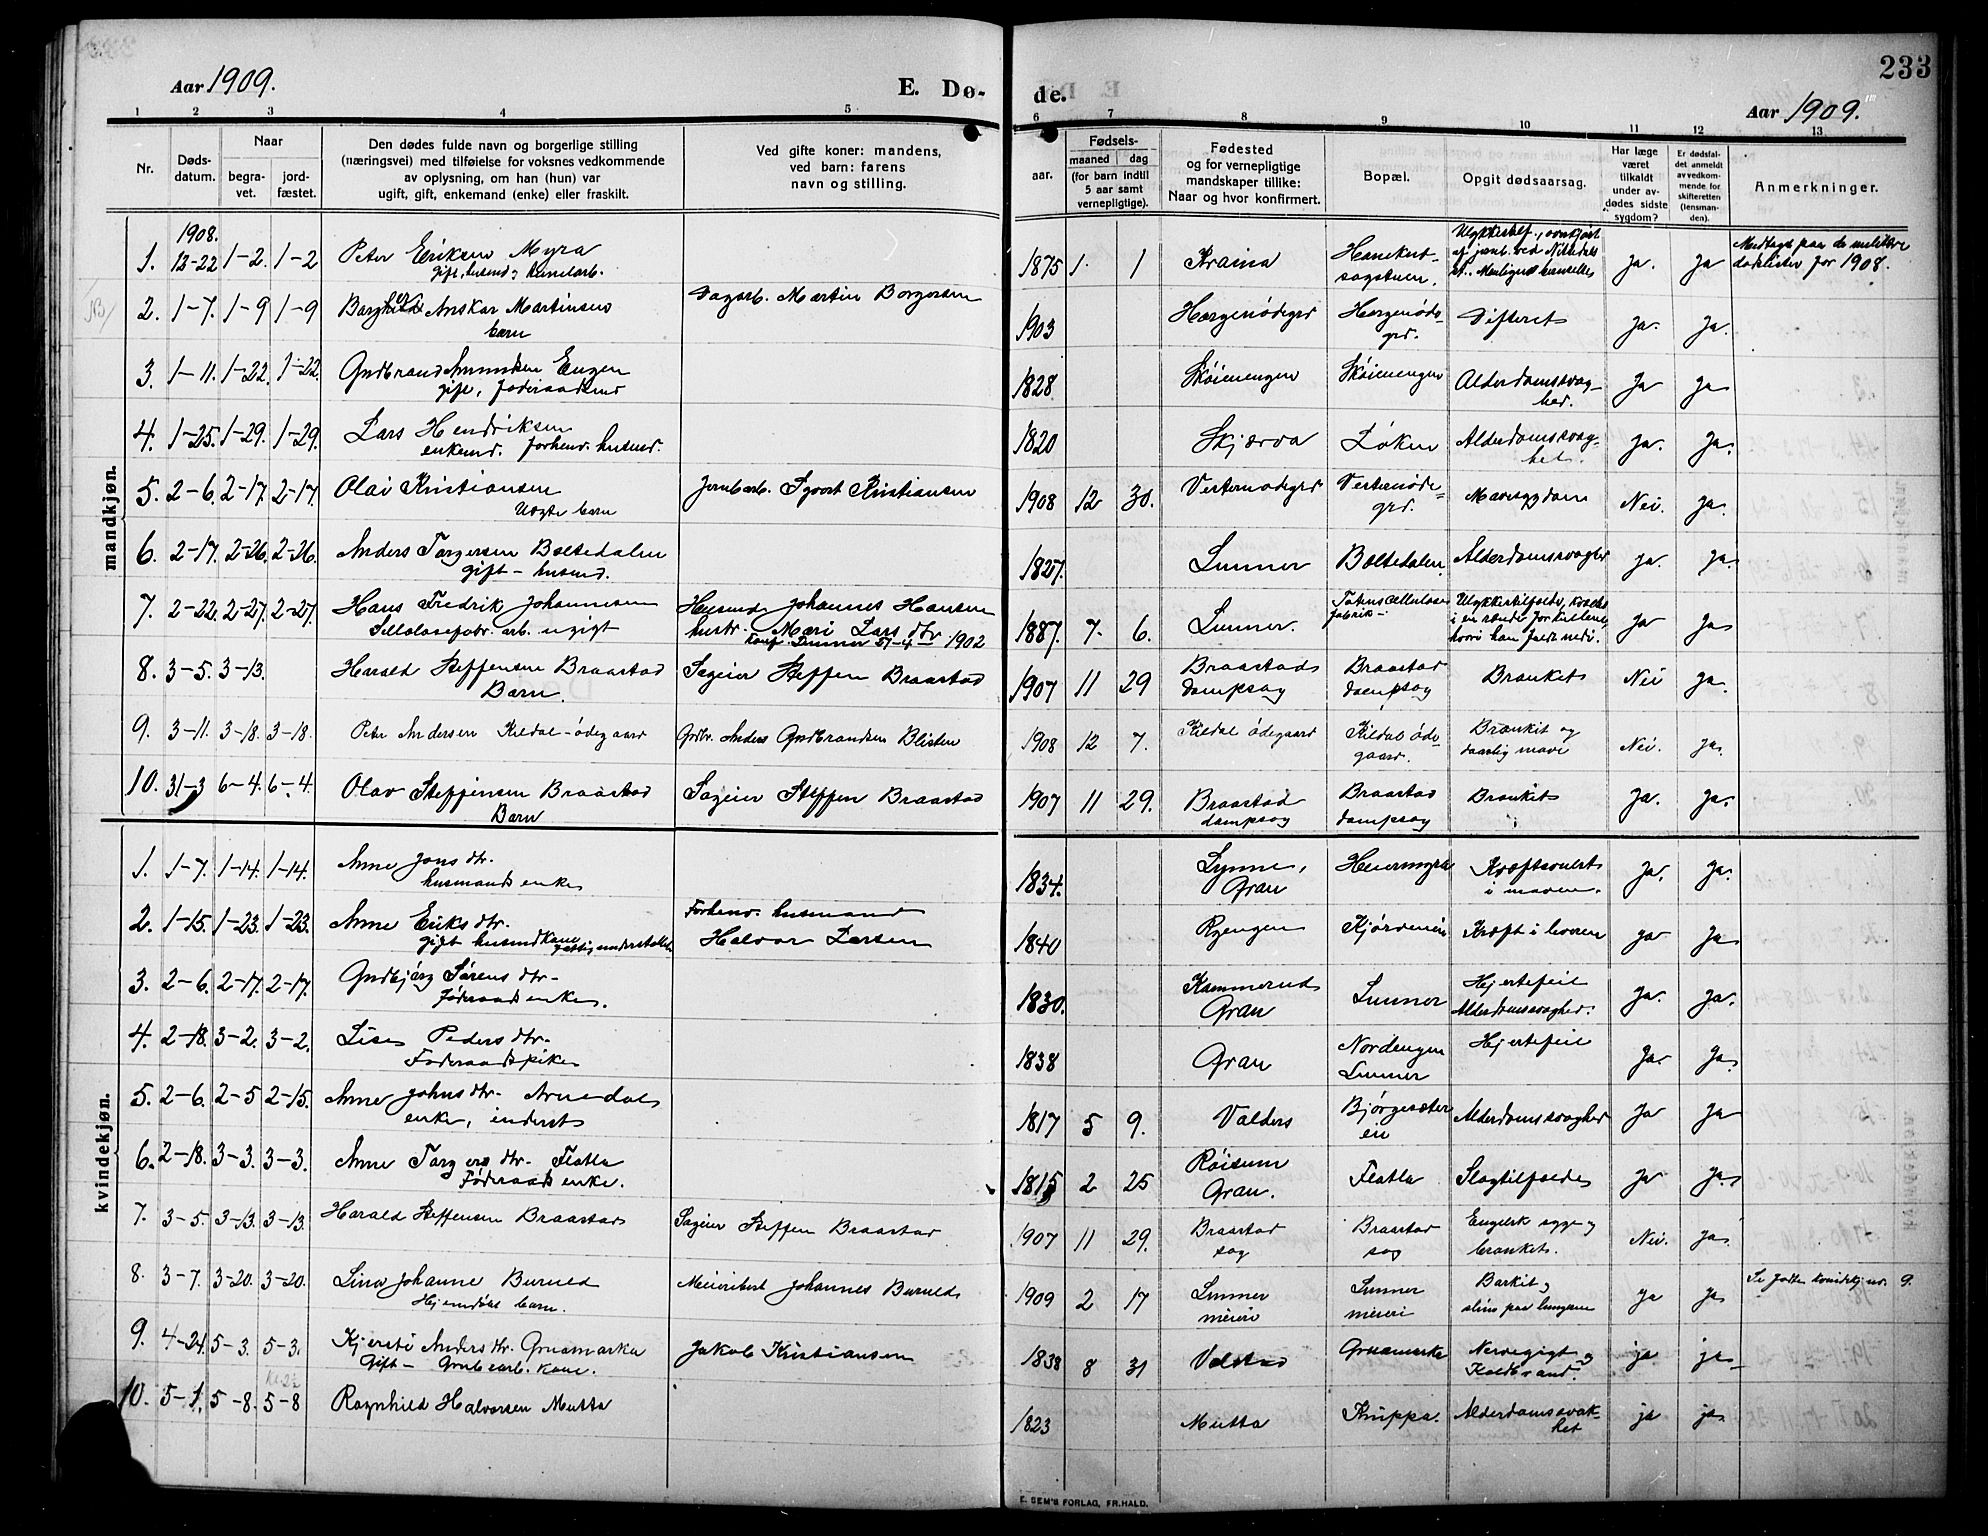 233
Aar 1909.
E. Dø-
de.
Aar 1909.
1 2 3 4 5 6 7 8 9 10 11 12 13
Nr.
Døds-
datum.
Naar
begra-
vet.
jord-
fæstet.
Den dødes fulde navn og borgerlige stilling
(næringsvei) med tilføielse for voksnes vedkommende
av oplysning, om han (hun) var
ugift, gift, enkemand (enke) eller fraskilt.
Ved gifte koner: mandens,
ved barn: farens
navn og stilling.
aar.
Fødsels-
maaned dag
(for barn indtil
5 aar samt
vernepligtige).
Fødested
og for vernepligtige
mandskaper tillike:
Naar og hvor konfirmert.
Bopæl.
Opgit dødsaarsag.
Har læge
været
tilkaldt
under av-
dødes sidste
sygdom?
Er dødsfal-
det anmeldt
av vedkom-
mende for
skifteretten
(lensman-
den).
Anmerkninger.
mandkjøn.
1908.
1. 12-22 1-2. 1-2 Peter Eriksen Myra 1875 1. 1 Kraina Ja. Ja
gift, husmd og
for 1908.
2. 1-7. 1-9 1-9 Anskar Martinsen Dagarb. Martin Borgersen 1903 Difterit Ja. Ja.
barn
3. 1-11. 1-22. 1-22. Gudbrand Amundsen Engen 1828 Skøienengen Skøienengen Alderdomssvag- Ja Ja
gift, føderaadsmd hed.
4. 1-25. 1-29. 1-29. Lars Hendriksen 1820 Skjærva Løken Alderdomssvag- Ja. Ja.
enkemd. forhenv. husmd. het.
5. 2-6. 2-17. 2-17. Olai Kristiansen Jernb.arb. Kristiansen 1908 12 30. Vestenødegrd Vestenøde- Mavesygdom Nei. Ja.
Uægte barn grd.
6. 2-17. 2-26. 2-26. Anders Torgersen Boltedalen 1827. Lunner Boltedalen. Alderdomssvaghed Ja. Ja.
gift - husmd.
7. 2-22. 2-27. 2-27. Hans Fredrik Johannesen Husmd Johannes Hansen 1887. 7. 6. Lunner. Totens Cellulose- Ulykkestilfælde, Ja Ja
arb. ugift hustr. Mari Lars dtr fabrik -
konf. Lunner 1902 hvori han faldt nedi.
8. 3-5. 3-13. Harald Steffensen Braastad Sageier Steffen Braastad 1907 11 29 Braastad Braastad Bronkit Nei Ja.
Barn. dampsag dampsag
9. 3-11. 3-18. 3-18. Peter Andersen Kildal-ødegaard Grdbr. Anders Gudbrandsen Blisten 1908 12 7. Kildal ødegaard Kildal øde- Bronkit og Nei. Ja.
gaard. daarlig mave
10. 31-3 6-4. 6-4. Olav Steffensen Braastad Sageier Steffen Braastad 1907 11 29. Braastad Braastad Bronkit Ja. Ja.
Barn dampsag dampsag
kvindekjøn.
1. 1-7. 1-14. 1-14. Anne Jons dtr. 1834. Lynne, Heiermyra Kræftsvulst Ja. Ja.
husmands enke Gran i maven.
2. 1-15. 1-23. 1-23. Anne Eriks dtr. Forhenv. husmand 1840 Rgengen Kræft i leveren Ja Ja
gift husmdkone Halvor Larsen
3. 2-6. 2-17. 2-17. Gudbjørg Sørens dtr. 1830. Kammerud Lunner Hjertefeil Ja. Ja.
føderaads enke. Gran Alderdomssvaghed.
4. 2-18. 3-2. 3-2. Lise Peders dtr. 1838 Gran Nordengen Hjertefeil Ja. Ja.
Føderaadspike Lunner
5. 2-6. 2-5 2-15. Anne Johns dtr. Arnedal 1817 5 9. Valders Bjørgesæter Alderdomssvaghed Ja Ja
enke, inderst eie
6. 2-18. 3-3. 3-3. Anne Torgers dtr. Flatla 1815 2 25 Røisum Flatla Slagtilfælde Ja Ja.
Føderaads enke. Gran.
7. 3-5. 3-13. 3-13. Harald Steffensen Braastad Sageier Steffen Braastad 1907 11 29. Braastad Braastad Engelsk syge og Nei. Ja.
sag sag bronkit.
8. 3-7. 3-20. 3-20. Lina Johanne Burud Meieribest. Johannes Burud 1909 2 17 Lunner Lunner Ja Ja 9.
Hjemdøbt barn. meieri meieri slim paa lungerne
9. 4-24. 5-3. 5-3. Kjersti Anders dtr. Gruamarka Jakob Kristiansen 1838 8 31 Velstad Gruamarka Nervegigt og ja ja
Gift - Grubearb. kone. Koldbrand.
10. 5-1. 5-8. 5-8 Ragnhild Halvorsen Mutta 1823 Mutta Knippa. Alderdomssvak- ja ja
het
E. SEM'S FORLAG, FR.HALD.